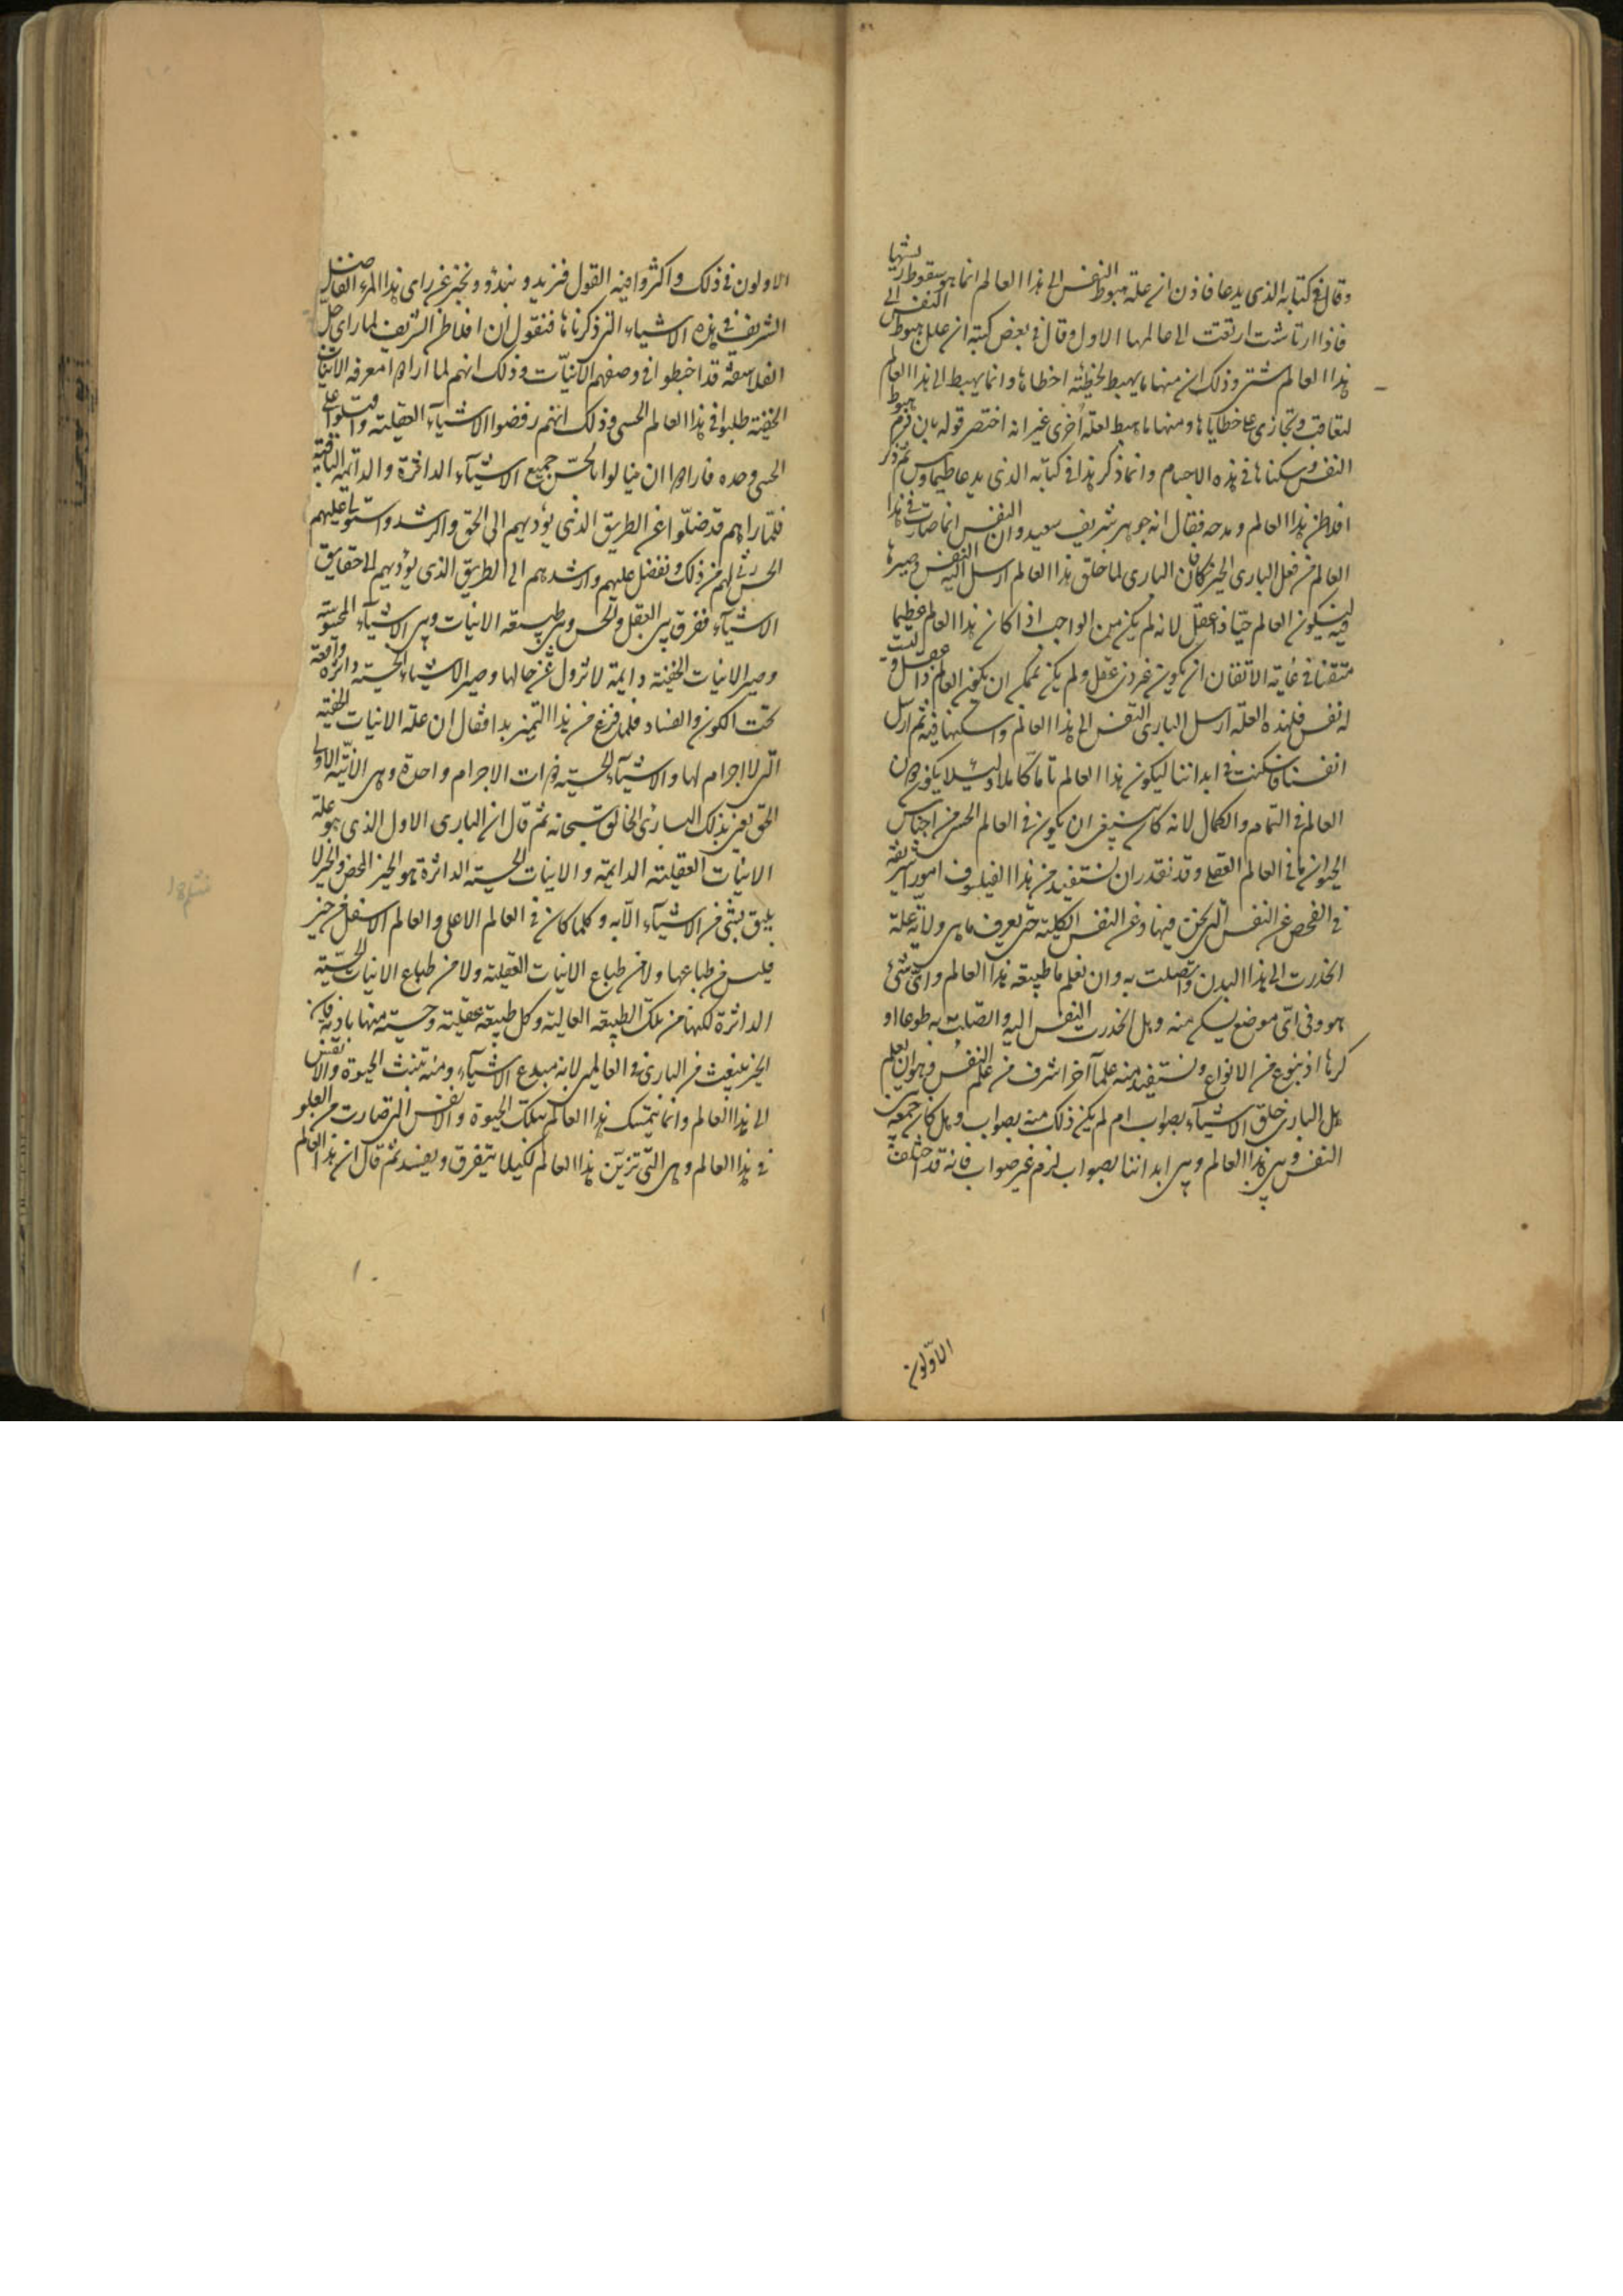 وقال في كتابه الذي يدعا فاذن ان علة هبوط النفس الى هذا العالم انما هو سقوط ريشها
فاذا ارتاشت ارتقت الى عالمها الاول وقال في بعض كتبه ان علل هبوط النفس الى
هذا العالم شتى وذلك ان منها ما يهبط لخطيئة اخطاها وانما يهبط الى هذا العالم
لتعاقب وتجازى على خطاياها ومنها ما هبط لعلة أخرى غير انه اختصر قوله بان ذم هبوط
النفس وسكناها في هذه الاجسام وانما ذكر هذا في كتابه الذي يدعا طيماوس ثم ذكر
افلاطن هذا العالم ومدحه فقال انه جوهر شريف سعيد وان النفس انما صارت في هذا
العالم من فعل البارى الخير فان البارى لما خلق هذا العالم ارسل اليه النفس وصيرها
فيه ليكون العالم حيا ذا عقل لانه لم يكن من الواجب اذا كان هذا العالم عظيما
متقنا في غاية الاتقان ان يكون غير ذى عقل ولم يكن ممكن ان يكون العالم ذا عقل وليست
له نفس فلهذه العلة ارسل البارى النفس الى هذا العالم واسكنها فيه ثم ارسل
انفسنا فسكنت في ابداننا ليكون هذا العالم تاما كاملا ولئلا يكون دون
العالم في التمام والكمال لانه كان ينبغى ان يكون في العالم الحسى من اجناس
الحيوان ما في العالم العقلى وقد نقدر ان نستفيد من هذا الفيلسوف امورا شريفة
في الفحص عن النفس التى نحن فيها وعن النفس الكلية حتى نعرف ما هى ولاية علة
انحدرت الى هذا البدن واتصلت به وان نعلم ما طبيعة هذا العالم واى شئ
هو وفى اى موضع يسكن منه وهل انحدرت النفس اليه واتصلت به طوعا او
كرها او بنوع من الانواع ونستفيد منه علما آخر اشرف من علم النفس وهو ان نعلم
هل البارى خلق الاشياء بصواب ام لم يكن ذلك منه بصواب وهل كان جمعه بين
النفس وبين هذا العالم وبين ابداننا بصواب ام غير صواب فانه قد اختلف
الاولون
الاولون في ذلك واكثروا فيه القول فنريد ونبدؤ ونخبر عن راى هذا المرء الفاضل
الشريف في هذه الاشياء التى ذكرناها فنقول ان افلاطن الشريف لما راى جل
الفلاسفة قد اخطوا في وصفهم الانيات وذلك انهم لما ارادوا معرفة الانيات
الخفية طلبوا في هذا العالم الحسى وذلك انهم رفضوا الاشياء العقلية واقبلوا على
الحسى وحده فارادوا ان ينالوا بالحس جميع الاشياء الداثرة والدائمة الباقية
فلما راهم قد ضلوا عن الطريق الذى يؤديهم الى الحق والرشد واستولى عليهم
الحس رثى لهم من ذلك وتفضل عليهم وارشدهم الى الطريق الذى يؤديهم الى حقايق
الاشياء ففرق بين العقل والحس وبين طبيعة الانيات وبين الاشياء المحسوسة
وصير الانيات الخفية دايمة لا تزول عن حالها وصير الاشياء الحسية داثرة واقعة
تحت الكون والفساد فلما فرغ من هذا التميز بدا فقال ان علة الانيات الخفية
التى لا اجرام لها والاشياء الحسية ذوات الاجرام واحدة وهى الانية الاولى
الحق يعنى بذلك البارئ الخالق سبحانه ثم قال ان البارى الاول الذى هو علة
الانيات العقلية الدايمة والانيات الحسية الداثرة هو الخير المحض والخير لا
يليق بشئ من الاشياء الا به وكلما كان في العالم الاعلى والعالم الاسفل من خير
فليس من طباعها ولا من طباع الانيات العقلية ولا من طباع الانيات الحسية
الداثرة لكنها من تلك الطبيعة العالية وكل طبيعة عقلية وحسية منها بادية فان
الخير ينبعث من البارى في العالمين لانه مبدع الاشياء ومنه تنبث الحيوة والانفس
الى هذا العالم وانما يتمسك هذا العالم بتلك الحيوة والانفس التى صارت من العلو
في هذا العالم وهى التى تزين هذا العالم لكيلا يتفرق ويفسد ثم قال ان هذا العالم